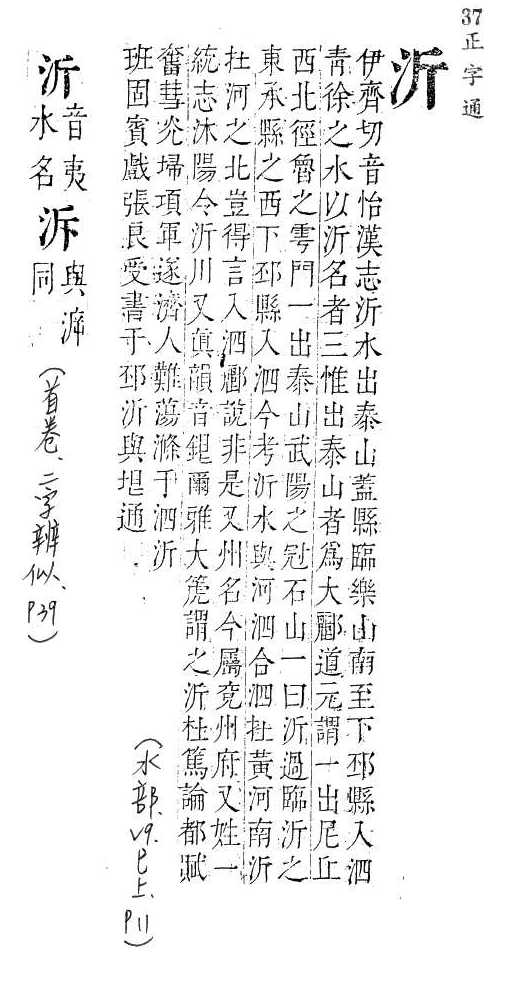 37 正字通
沂
伊齊切音怡漢志沂水出泰山蓋縣臨樂山南至下邳縣入泗
靑徐之水以沂名者三惟出泰山者爲大酈道元謂一出尼丘
西北徑魯之雩門一出泰山武陽之冠石山一曰沂過臨沂之
東承縣之西下邳縣入泗今考沂水與河泗合泗在黃河南沂
在河之北豈得言入泗酈說非是又州名今屬兗州府又姓一
統志沐陽令沂川又眞韻音銀爾雅大箎謂之沂杜篤論都賦
奮彗光埽項軍遂濟人難蕩滌于泗沂
班固賓戲張良受書于邳沂與垠通
(水部、v9.巳上、P11)
沂 音夷
水名
泝 與
同
(首卷、二字辨似、P39)